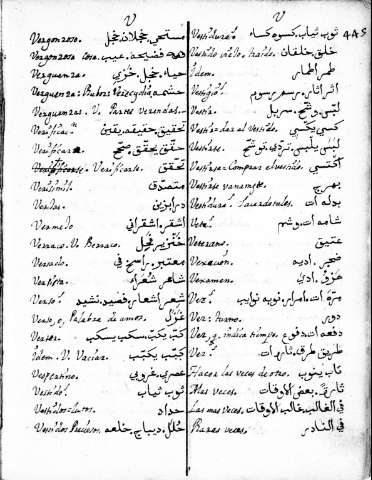 V
Vergonzoso. مستحي، خجلان، خجل
Vergonzosa cosa. فضيحة، عيب
Verguenza. حياء، خجل، خزي
Verguenza: حشمة
Verguenzas. V. Partes verendas.
Verificac.ⁿ تحقيق، حقيقة، يقين
Verificar. حقق يحقق، صحح
Verificarse. تحقق
Verisimil. متصدق
Verjas. درابزين
Vermejo اشقر، اشقراني
Verraco. V. Berraco. خنزير فحل
Versado. معتبر، راسخ في
Versista. شاعر، شعراء
Verso. شعر، اشعار، قصيد، نشيد
Verso, o, Palabra de amor. غزل
Verter. كب يكب، سكب يسكب
Idem. V. Vaciar. كبب يكبب
Vespertino. عصري، غروبي
Vestido. ثوب، ثياب
Vestidos=lutos. حداد
Vestidos Precioso. حلل، ديباج، خلعة
V
445
Vestidura. ثوب، ثياب، كسوة، كساء
Vestido viejo, traido. خلق، خلقان
Idem. طمر، اطمار
Vestigio. اثر، اثار، رسم، رسوم
Vestir. لبس، سربل
Vestir=dar al vestido. كسي يكسي
Vestirse. لبس يلبس، تردى
Vestirse=Comprar el vestido. اكتسى
Vestirse vanamente. بهرج
Vestidura. Sacerdotales. بدلة ات
Veta. شامة ات
Veterano. عتيق
Vexacion. ضجر، اذية
Vexamen.
Vez. مرة ات، امرار، نوبة، نوايب
Vez: turno. دور
Vez, o, indica tiempo. دفعة ات، دفوع
Vez. طريق، طرق، تارة ات
Hacer las veces de otro. ناب ينوب
A las veces. تارة، بعض الاوقات
Las mas veces. في الغالب، غالب الاوقات
Raras veces. في النادر